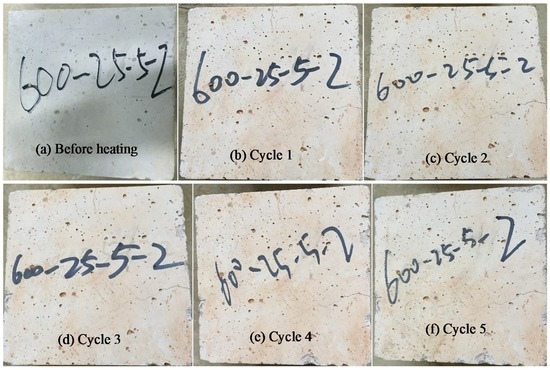 600-25-5-2
(a) Before heating
600-25-5-2
(b) Cycle 1
600-25-5-2
(c) Cycle 2
600-25-5-2
(d) Cycle 3
600-25-5-2
(e) Cycle 4
600-25-5-2
(f) Cycle 5